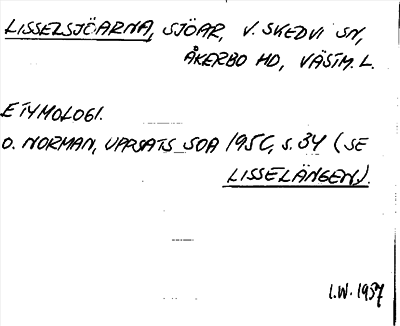 LISSELSJÖARNA, SJÖAR, V. SKEDVI SN,
ÅKERBO HD, VÄSTM. L.
ETYMOLOGI.
O. NORMAN, UPPSATS SOA 195C, S. 34 (SE
LISSELÄNGEN).
I.W. 1937